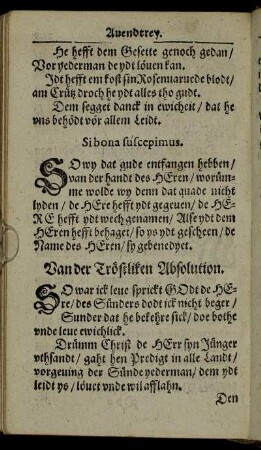 Auendtrey.
He hefft dem Gesette genoch gedan/
Vor yederman de ydt löuen kan.
Jdt hefft em kost sin Rosenuaruede blodt/
am Crütz droch he ydt alles tho gudt.
Dem segget danck in ewicheit/ dat he
vns behödt vör allem Leidt.
Si bona suscepimus.
SO wy dat gude entfangen hebben/
van der handt des HEren/ worüm-
me wolde wy denn dat quade nicht
lyden/ de HEre hefft ydt gegeuen/ de HE-
RE hefft ydt wech genamen/ Alse ydt dem
HEren hefft behaget/ so ys ydt gescheen/ de
Name des HEren/ sy gebenedyet.
Van der Tröstliken Absolution.
SO war ick leue sprickt GOdt de HE-
re/ des Sünders dodt ick nicht beger/
Sunder dat he bekehre sick/ doe bothe
vnde leue ewichlick.
Drümm Christ de HErr syn Jünger
vthsandt/ gaht hen Predigt in alle Landt/
vorgeuing der Sünde yederman/ dem ydt
leidt ys/ löuet vnde wil afflahn.
Den